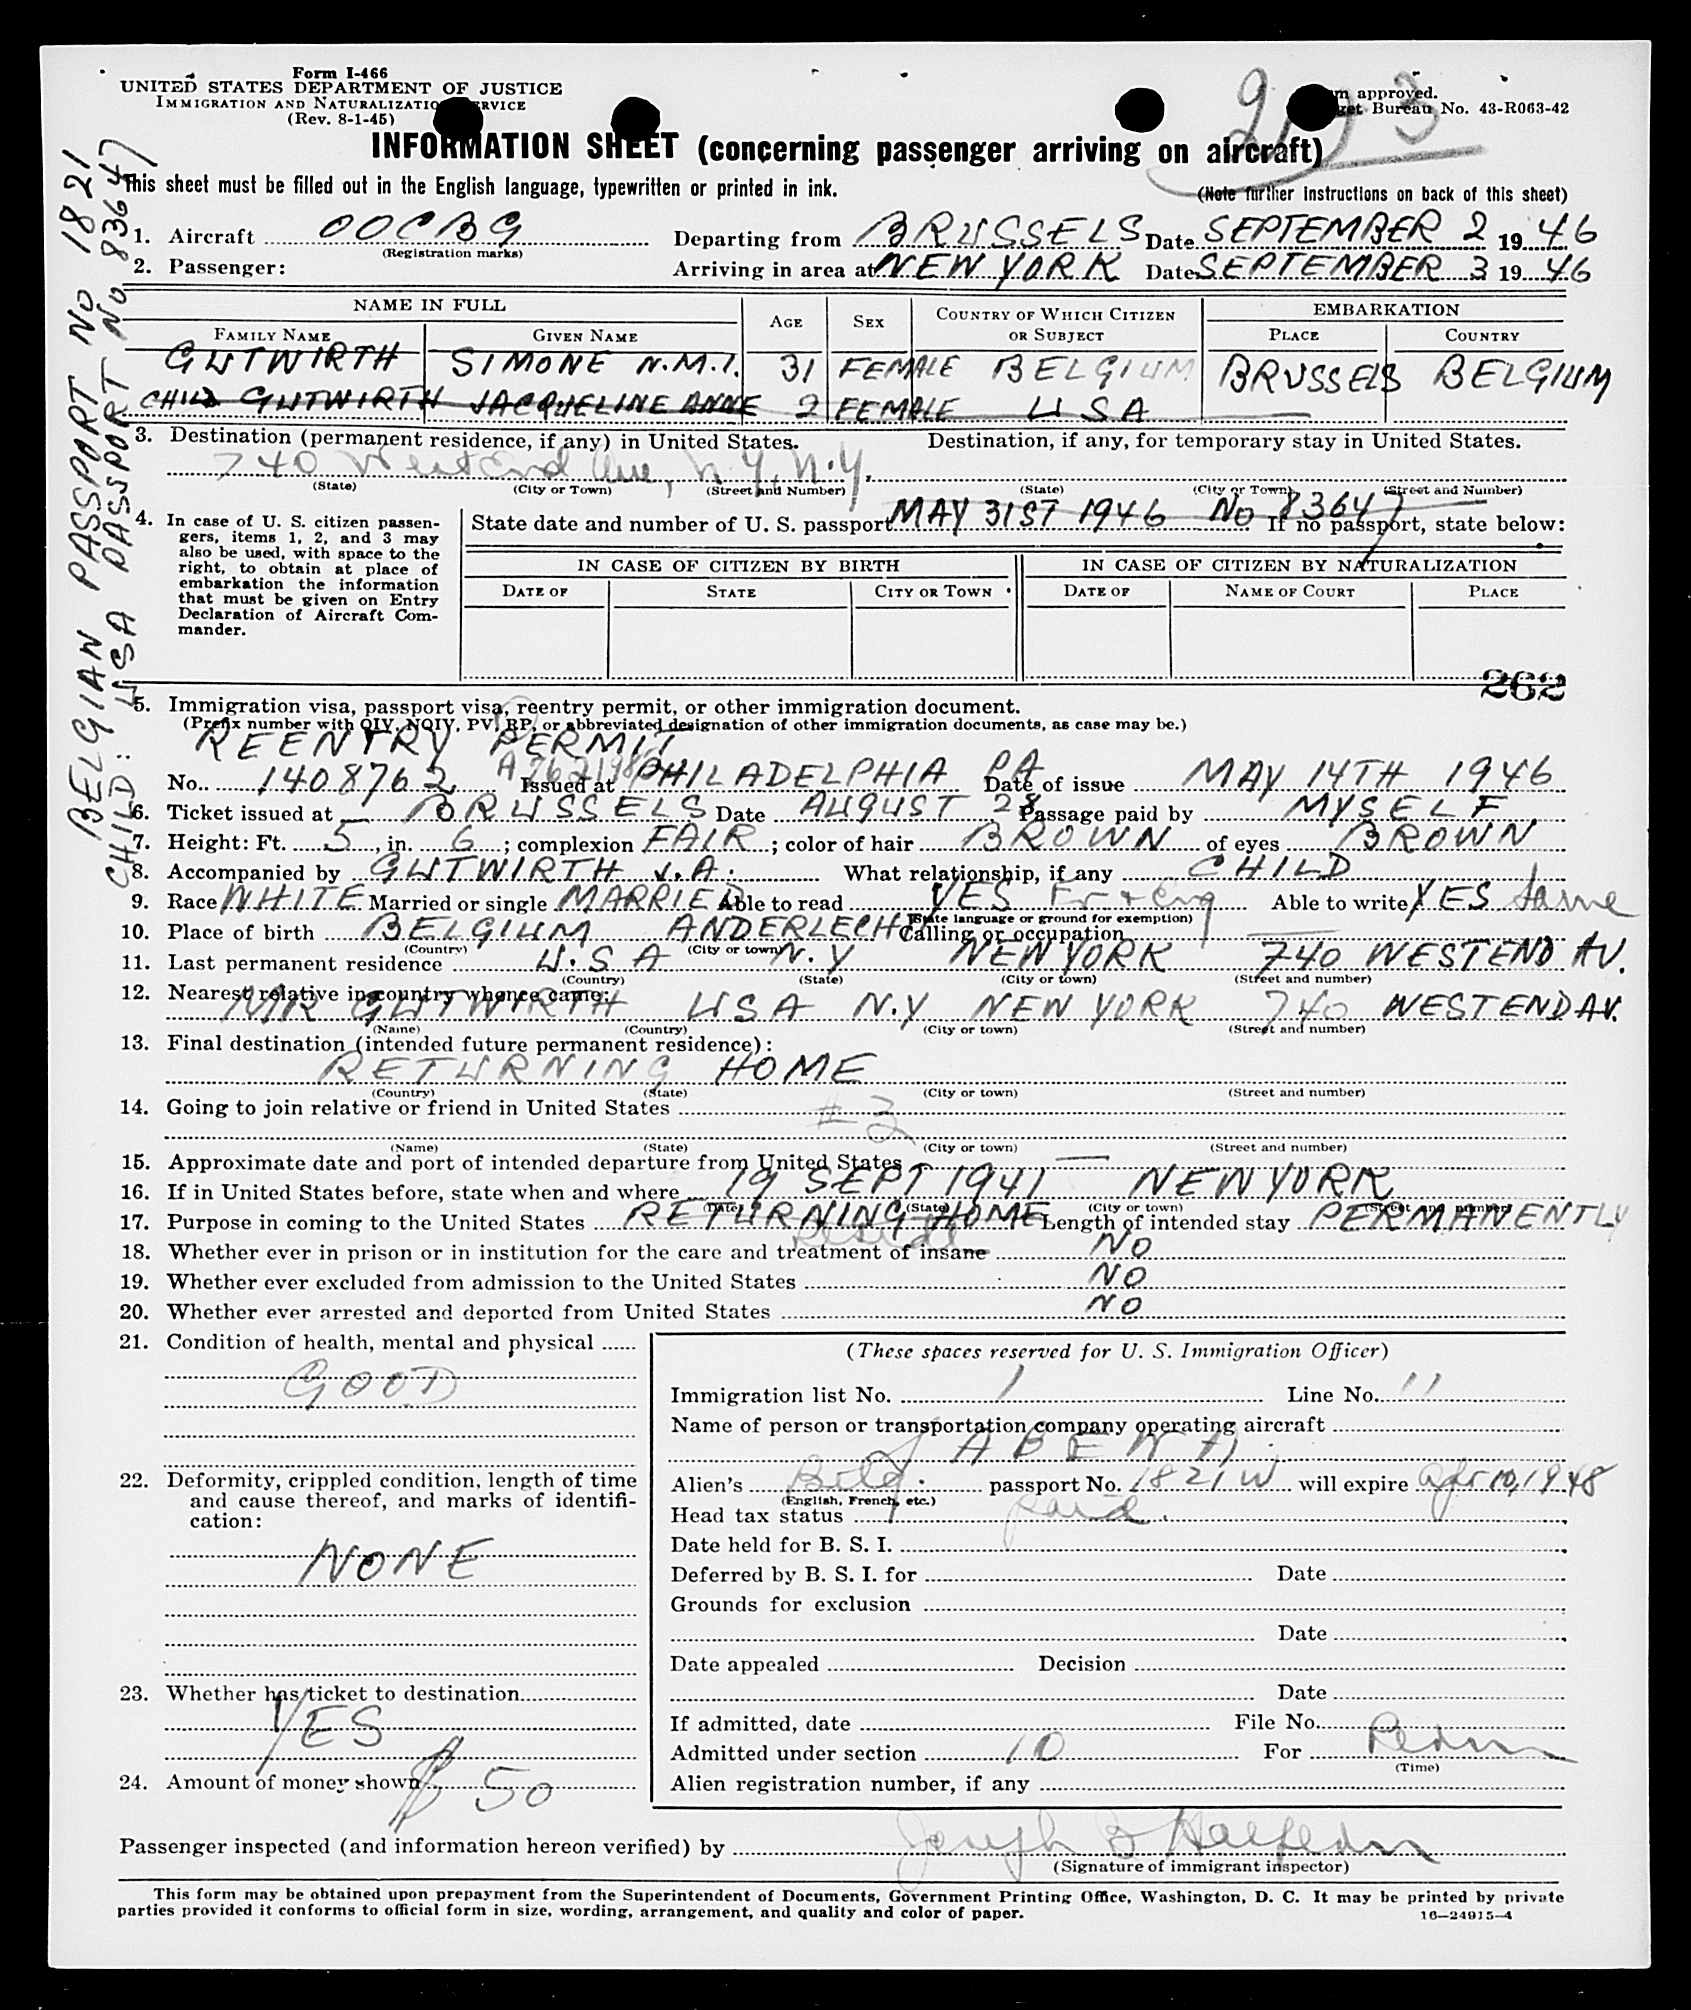 Form I-466
UNITED STATES DEPARTMENT OF JUSTICE
IMMIGRATION AND NATURALIZATION SERVICE
(Rev. 8-1-45)
Form approved.
Budget Bureau No. 43-R063-42
INFORMATION SHEET (concerning passenger arriving on aircraft)
This sheet must be filled out in the English language, typewritten or printed in ink.
(Note further instructions on back of this sheet)
BELGIAN PASSPORT No 1821
CHILD: USA PASSPORT No 83647
1. Aircraft OOCBG Departing from BRUSSELS Date SEPTEMBER 2 1946
(Registration marks)
2. Passenger: Arriving in area at NEW YORK Date SEPTEMBER 3 1946
NAME IN FULL AGE SEX COUNTRY OF WHICH CITIZEN OR SUBJECT EMBARKATION
FAMILY NAME GIVEN NAME PLACE COUNTRY
GUTWIRTH SIMONE N.M.I. 31 FEMALE BELGIUM BRUSSELS BELGIUM
CHILD GUTWIRTH JACQUELINE ANNE 2 FEMALE USA
3. Destination (permanent residence, if any) in United States. Destination, if any, for temporary stay in United States.
740 West End Ave, N.Y, N.Y,
(State) (City or Town) (Street and Number) (State) (City or Town) (Street and Number)
4. In case of U. S. citizen passengers, items 1, 2, and 3 may also be used, with space to the right, to obtain at place of embarkation the information that must be given on Entry Declaration of Aircraft Commander.
State date and number of U. S. passport MAY 31ST 1946 No 83647 If no passport, state below:
IN CASE OF CITIZEN BY BIRTH IN CASE OF CITIZEN BY NATURALIZATION
DATE OF STATE CITY OR TOWN DATE OF NAME OF COURT PLACE
262
5. Immigration visa, passport visa, reentry permit, or other immigration document.
(Prefix number with QIV, NQIV, PV, RP, or abbreviated designation of other immigration documents, as case may be.)
REENTRY PERMIT
No. 1408762 Issued at PHILADELPHIA PA Date of issue MAY 14TH 1946
6. Ticket issued at BRUSSELS Date AUGUST 28 Passage paid by MYSELF
7. Height: Ft. 5, in. 6; complexion FAIR; color of hair BROWN of eyes BROWN
8. Accompanied by GUTWIRTH J.A. What relationship, if any CHILD
9. Race WHITE Married or single MARRIED Able to read YES Fr + Eng Able to write YES Same
(State language or ground for exemption)
10. Place of birth BELGIUM ANDERLECHT Calling or occupation
(Country) (City or town)
11. Last permanent residence U.S.A N.Y NEW YORK 740 WESTEND AV.
(Country) (State) (City or town) (Street and number)
12. Nearest relative in country whence came:
MR GUTWIRTH USA N.Y NEW YORK 740 WESTEND AV.
(Name) (Country) (City or town) (Street and number)
13. Final destination (intended future permanent residence):
RETURNING HOME
(Country) (State) (City or town) (Street and number)
14. Going to join relative or friend in United States
# 3
(Name) (State) (City or town) (Street and number)
15. Approximate date and port of intended departure from United States —
16. If in United States before, state when and where 19 SEPT 1941 NEW YORK
(Date) (State) (City or town) (Street and number)
17. Purpose in coming to the United States RETURNING HOME Length of intended stay PERMANENTLY
18. Whether ever in prison or in institution for the care and treatment of insane NO
19. Whether ever excluded from admission to the United States NO
20. Whether ever arrested and deported from United States NO
21. Condition of health, mental and physical
GOOD
22. Deformity, crippled condition, length of time and cause thereof, and marks of identification:
NONE
23. Whether has ticket to destination
YES
24. Amount of money shown $ 50
(These spaces reserved for U. S. Immigration Officer)
Immigration list No. 1 Line No. 11
Name of person or transportation company operating aircraft
Alien's Belg. passport No. 1821W will expire Apr 10, 1948
(English, French, etc.)
Head tax status paid.
Date held for B. S. I.
Deferred by B. S. I. for Date
Grounds for exclusion
Date
Date appealed Decision
Date
If admitted, date File No.
Admitted under section 10 For Perm
(Time)
Alien registration number, if any
Passenger inspected (and information hereon verified) by Joseph B Halpern
(Signature of immigrant inspector)
This form may be obtained upon prepayment from the Superintendent of Documents, Government Printing Office, Washington, D. C. It may be printed by private
parties provided it conforms to official form in size, wording, arrangement, and quality and color of paper.
16—24915-4